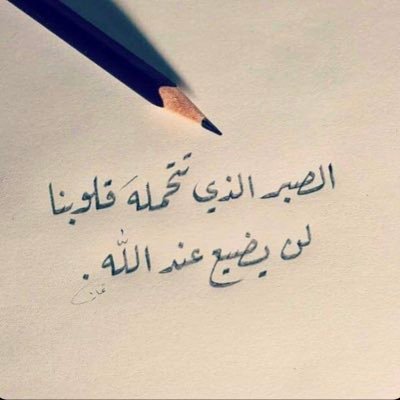 الصبر الذي تتحملهَ قلوبنا
لن يضيع عند الله.